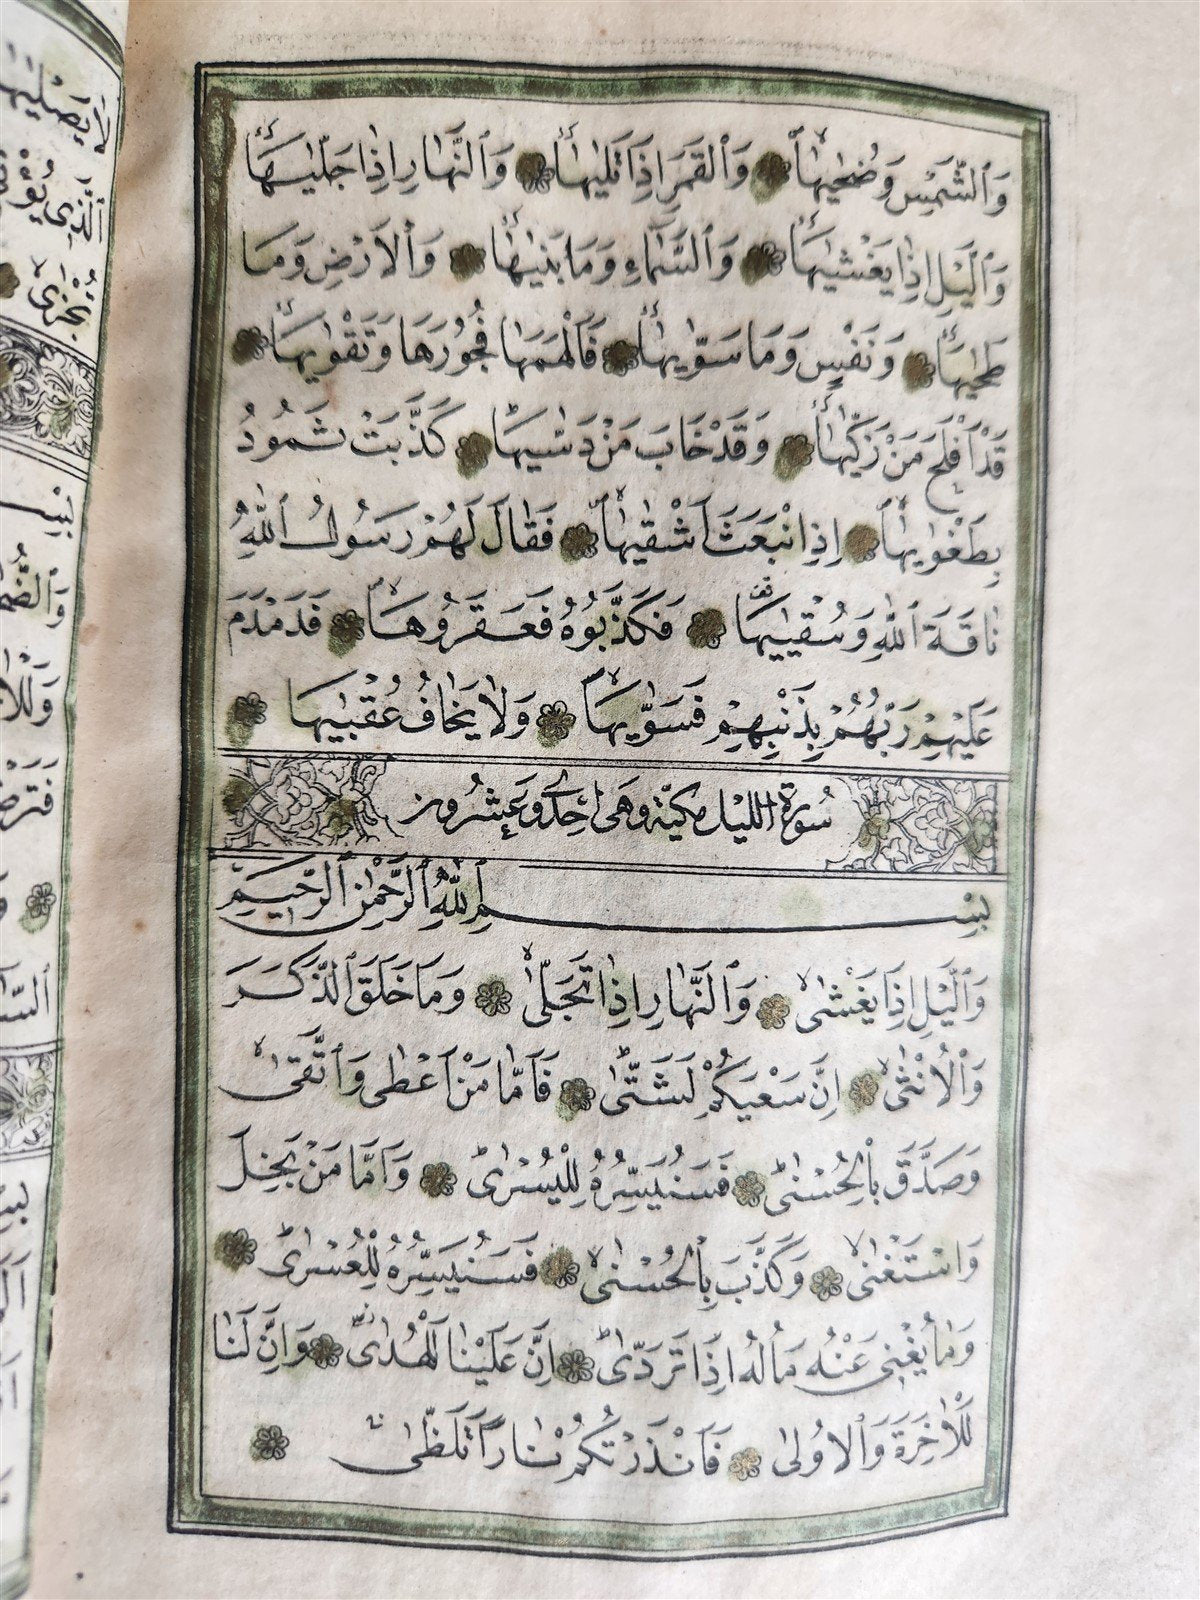 وَٱلشَّمْسِ وَضُحٰيهَاۙ وَٱلْقَمَرِ اِذَا تَلٰيهَاۙ وَٱلنَّهَارِ اِذَا جَلّٰيهَاۙ
وَٱلَّيْلِ اِذَا يَغْشٰيهَاۙ وَٱلسَّمَاءِ وَمَا بَنٰيهَاۙ وَٱلْاَرْضِ وَمَا
طَحٰيهَاۙ وَنَفْسٍ وَمَا سَوّٰيهَاۙ فَاَلْهَمَهَا فُجُورَهَا وَتَقْوٰيهَاۙ
قَدْ اَفْلَحَ مَنْ زَكّٰيهَاۙ وَقَدْ خَابَ مَنْ دَسّٰيهَاۜ كَذَّبَتْ ثَمُودُ
بِطَغْوٰيهَاۙ اِذِ انْبَعَثَ اَشْقٰيهَاۙ فَقَالَ لَهُمْ رَسُولُ ٱللّٰهِ
نَاقَةَ ٱللّٰهِ وَسُقْيٰيهَا فَكَذَّبُوهُ فَعَقَرُوهَاۙ فَدَمْدَمَ
عَلَيْهِمْ رَبُّهُمْ بِذَنْبِهِمْ فَسَوّٰيهَاۙ وَلَا يَخَافُ عُقْبٰيهَا
سُورَة الليْل مكيّة وهى احدى وعشرون
بِسْمِ ٱللّٰهِ ٱلرَّحْمٰنِ ٱلرَّحِيمِ
وَٱلَّيْلِ اِذَا يَغْشٰىۙ وَٱلنَّهَارِ اِذَا تَجَلّٰىۙ وَمَا خَلَقَ ٱلذَّكَرَ
وَٱلْاُنْثٰىۙ اِنَّ سَعْيَكُمْ لَشَتّٰىۜ فَاَمَّا مَنْ اَعْطٰى وَٱتَّقٰىۙ
وَصَدَّقَ بِٱلْحُسْنٰىۙ فَسَنُيَسِّرُهُ لِلْيُسْرٰىۜ وَاَمَّا مَنْ بَخِلَ
وَاسْتَغْنٰىۙ وَكَذَّبَ بِٱلْحُسْنٰىۙ فَسَنُيَسِّرُهُ لِلْعُسْرٰىۜ
وَمَا يُغْنِى عَنْهُ مَالُهُ اِذَا تَرَدّٰىۜ اِنَّ عَلَيْنَا لَلْهُدٰىۘ وَاِنَّ لَنَا
لَلْاٰخِرَةَ وَٱلْاُولٰى فَاَنْذَرْتُكُمْ نَارًا تَلَظّٰىۚ